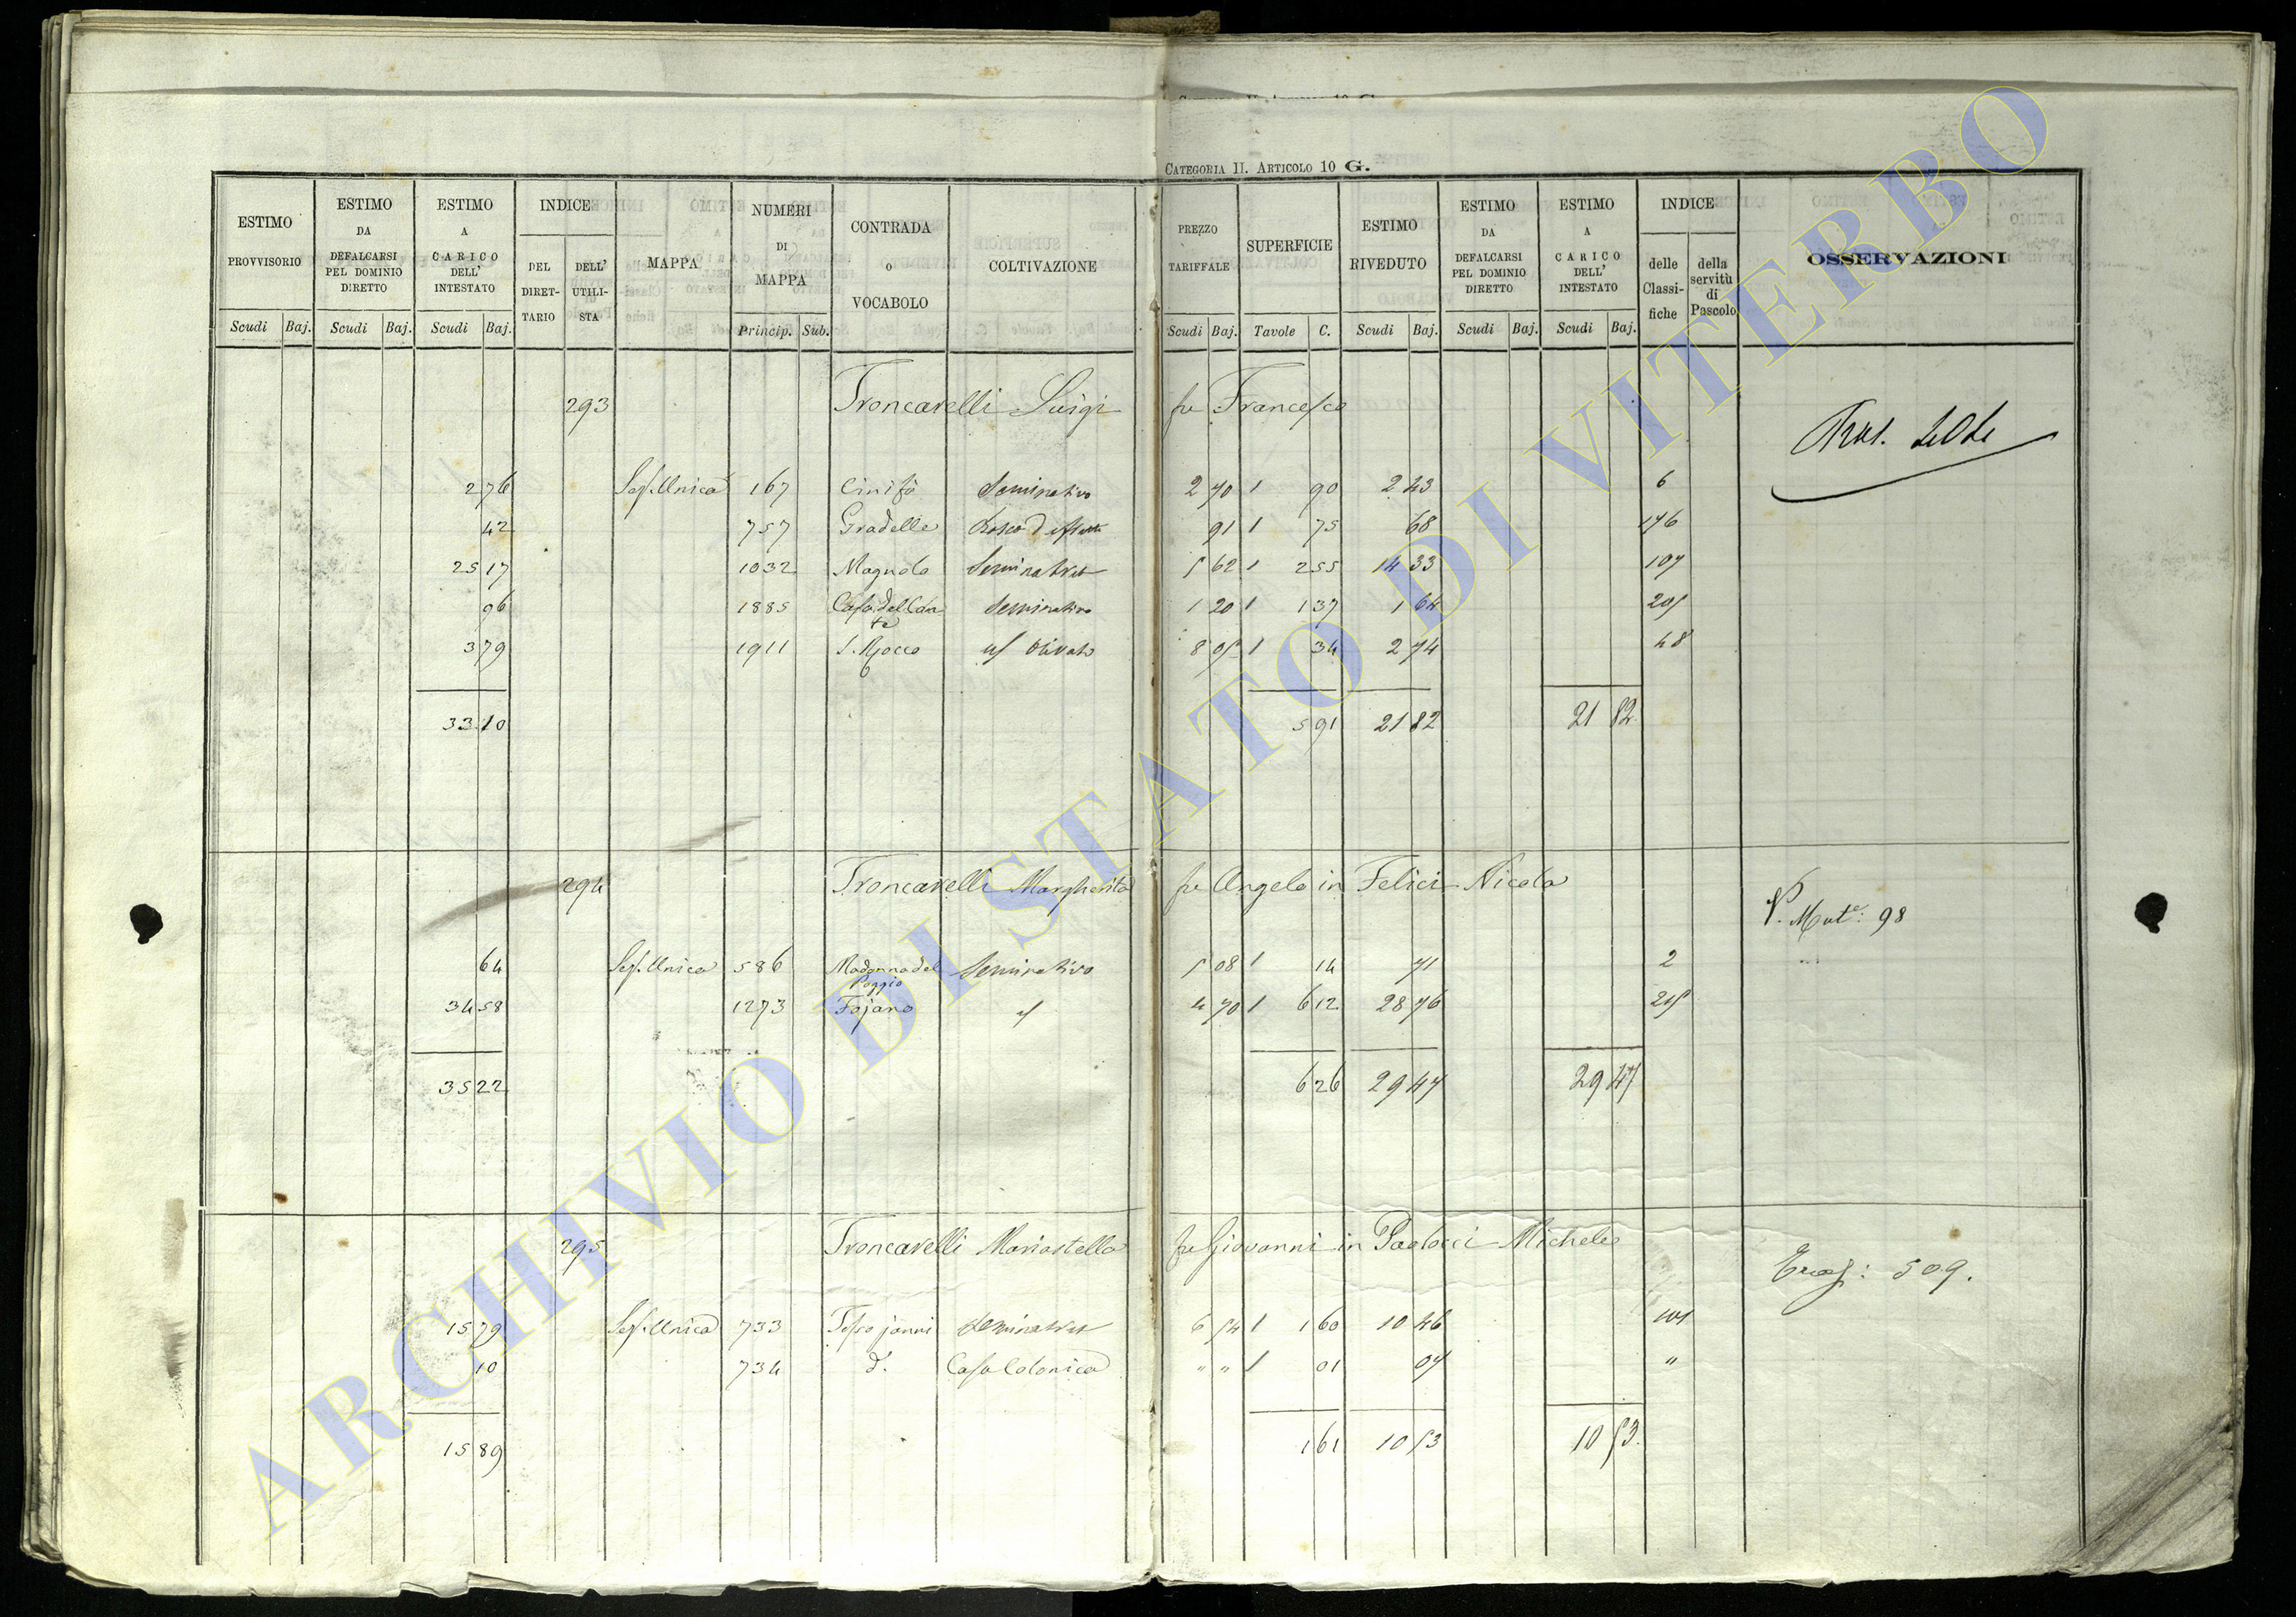 CATEGORIA II. ARTICOLO 10 G.
ESTIMO PROVVISORIO Scudi Baj. ESTIMO DA DEFALCARSI PEL DOMINIO DIRETTO Scudi Baj. ESTIMO A CARICO DELL' INTESTATO Scudi Baj. INDICE DEL DIRET- TARIO DELL' UTILI- STA MAPPA NUMERI DI MAPPA Princip. Sub. CONTRADA O VOCABOLO COLTIVAZIONE PREZZO TARIFFALE Scudi Baj. SUPERFICIE Tavole C. ESTIMO RIVEDUTO Scudi Baj. ESTIMO DA DEFALCARSI PEL DOMINIO DIRETTO Scudi Baj. ESTIMO A CARICO DELL' INTESTATO Scudi Baj. INDICE delle Classi- fiche della servitù di Pascolo OSSERVAZIONI
293 Troncarelli Luigi fu Francesco
2 76 Sez. Unica 167 Cinifà Seminativo 2 70 1 90 2 43 6
42 757 Gradelle Bosco d 91 1 75 68 176
25 17 1032 Magnolo Seminativo 5 62 1 2 55 14 33 107
96 1885 Casa del Con te Seminativo 1 20 1 1 37 1 64 205
3 79 1911 S. Rocco Olivato 8 05 1 34 2 74 48
33 10 5 91 21 82 21 82
294 Troncarelli Margherita fu Angelo in Felici Nicola
V. Mut.e: 98
64 Sez. Unica 586 Madonna del Poggio Seminativo 5 08 1 14 71 2
34 58 1273 Fojano 4 70 1 6 12 28 76 205
35 22 6 26 29 47 29 47
295 Troncarelli Mariastella fu Giovanni in Paolocci Michele
509.
15 79 Sez. Unica 733 Seminativo 6 54 1 1 60 10 46 101
10 734 d.o Casa Colonica " " 1 01 07 "
15 89 1 61 10 53 10 53
ARCHIVIO DI STATO DI VITERBO